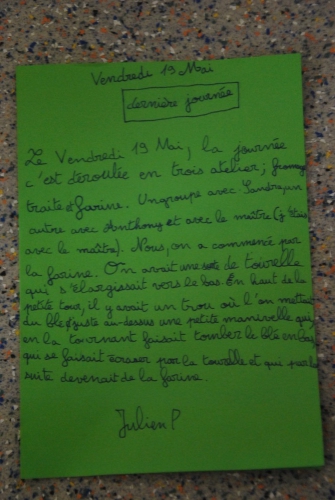 Vendredi 19 Mai
dernière journée
Le Vendredi 19 Mai, la journée
c'est déroulée en trois atelier; fromage
traite et farine. Un groupe avec Sandra, un
autre avec Anthony et avec le maître (j'étais
avec le maître). Nous, on a commencé par
la farine. On avait une sorte de tourelle
qui s'élargissait vers le bas. En haut de la
petite tour, il y avait un trou où l'on mettait
du blé et juste au-dessus une petite manivelle qui,
en la tournant faisait tomber le blé en bas,
qui se faisait écraser par la tourelle et qui par la
suite devenait de la farine.
Julien P